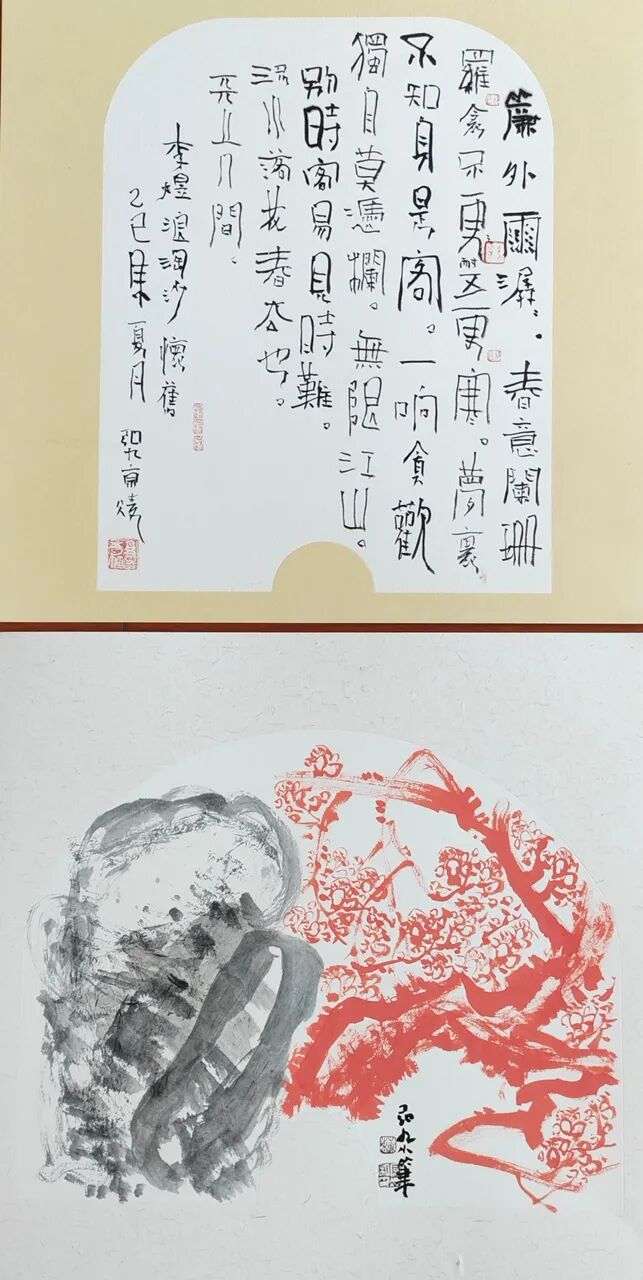 簾外雨潺、。春意闌珊
羅衾不更耐五更寒。夢裏
不知身是客。一响貪歡
獨自莫憑欄。無限江山。
別時容易見時難。
流水落花春去也。
天上人間。
李煜浪淘沙懷舊
乙巳年夏月